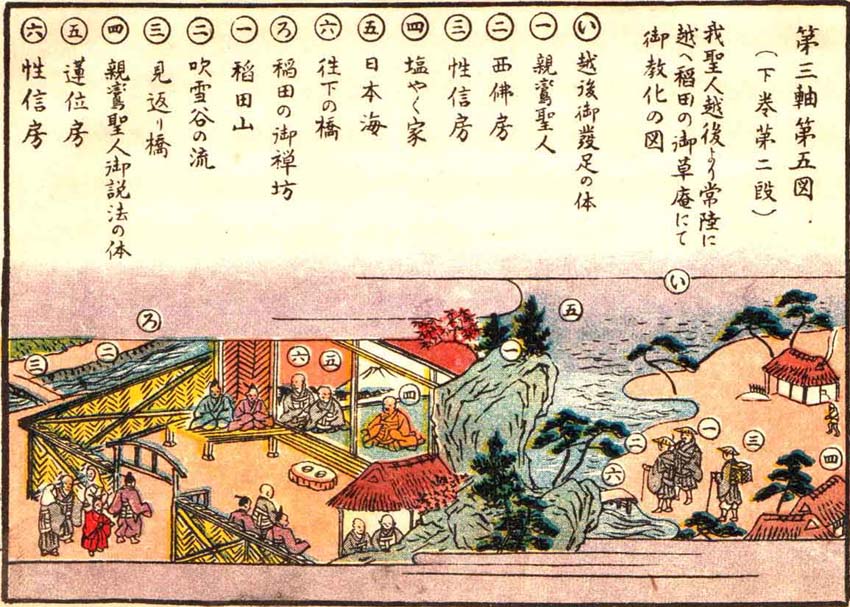 第三軸第五図．
（下巻第二段）
我聖人越後より常陸に
越へ稲田の御草庵にて
御教化の図
い 越後御発足の体
一 親鸞聖人
二 西佛房
三 性信房
四 塩やく家
五 日本海
六 往下の橋
ろ 稲田の御禅坊
一 稲田山
二 吹雪谷の流
三 見返り橋
四 親鸞聖人御説法の体
五 蓮位房
六 性信房
い
ろ
五
一
三
二
六
五
四
二
一
三
六
四